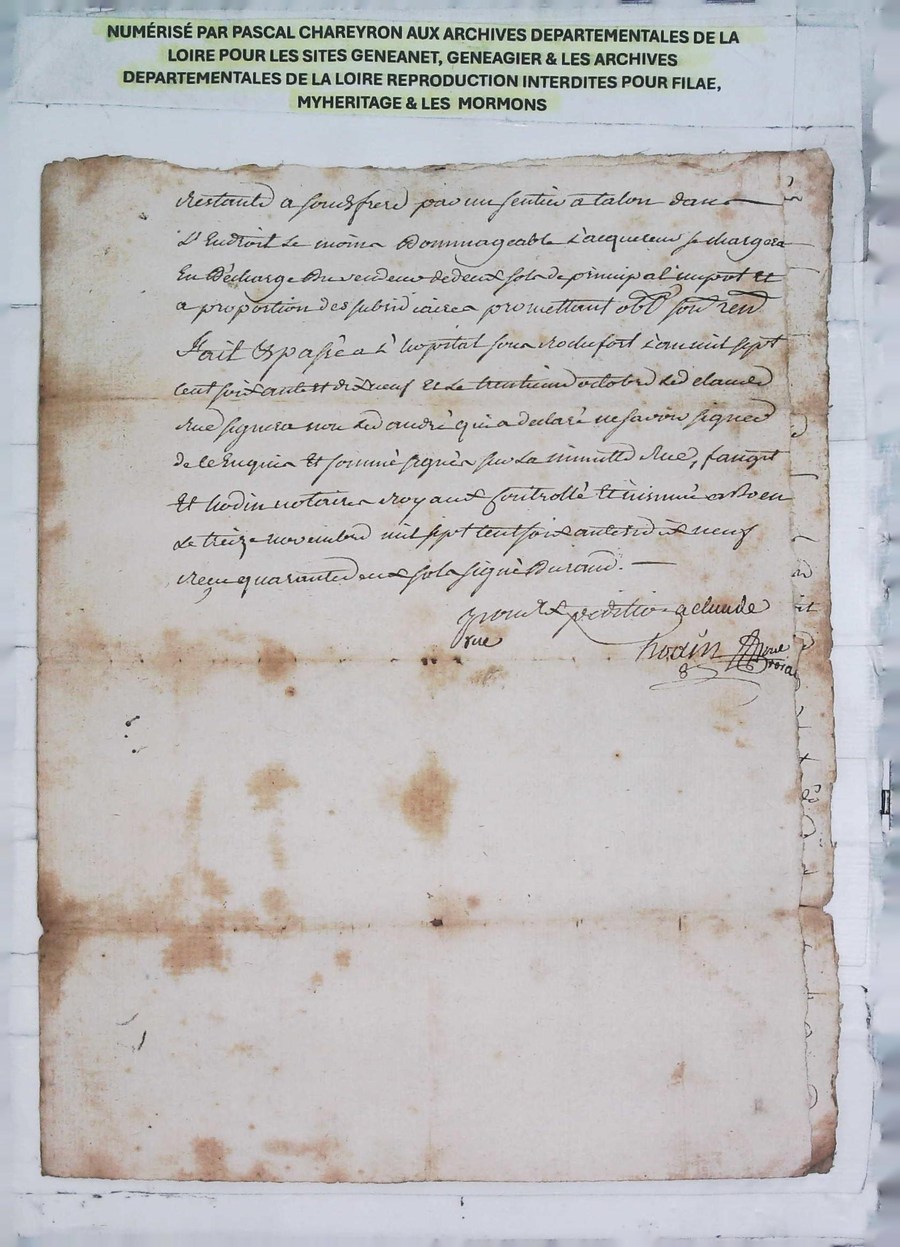 NUMÉRISÉ PAR PASCAL CHAREYRON AUX ARCHIVES DEPARTEMENTALES DE LA
LOIRE POUR LES SITES GENEANET, GENEAGIER & LES ARCHIVES
DEPARTEMENTALES DE LA LOIRE REPRODUCTION INTERDITES POUR FILAE,
MYHERITAGE & LES MORMONS
restante a soudz frere par un sentier a talon dans
L'Endroit Le moins Dommageable L'acquereur se chargera
En Décharge Du vendeur de deux sols de principal impot Et
a proportion des subsidiaires promettant obl soud rend
fait Et passé a L'hopital sous Rochefort L'an mil sept
cent soixante et dix neuf Et Le trentieme octobre Led claude
Rue signera non Led andré qui a declaré ne savoir signer
de ce Enquis Et sommé signés sur La minutte Rue,
Et hodin notaires Royaux Controllé Et insinué a Boen
Le treize novembre mil sept cent soixante et dix neuf
reçu quarante deux sols signé Durand.
pour Expedition a claude
rue
hodin